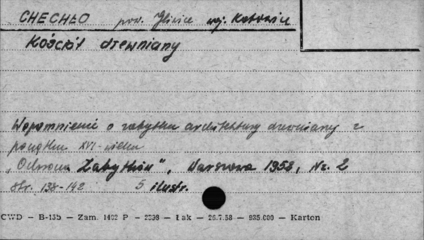 CHECHŁO pow. Gliwice woj. Katowice
Kościół drewniany
Wspomnienie o zabytku architektury drewnianej z
początku XVI-wieku
„Ochrona Zabytków", Warszawa 1953, Nr. 2
str. 138-142 5 ilustr.
CWD — B-135 — Zam. 1492 P — 2539 — Łak — 26.7.58 — 935.000 — Karton